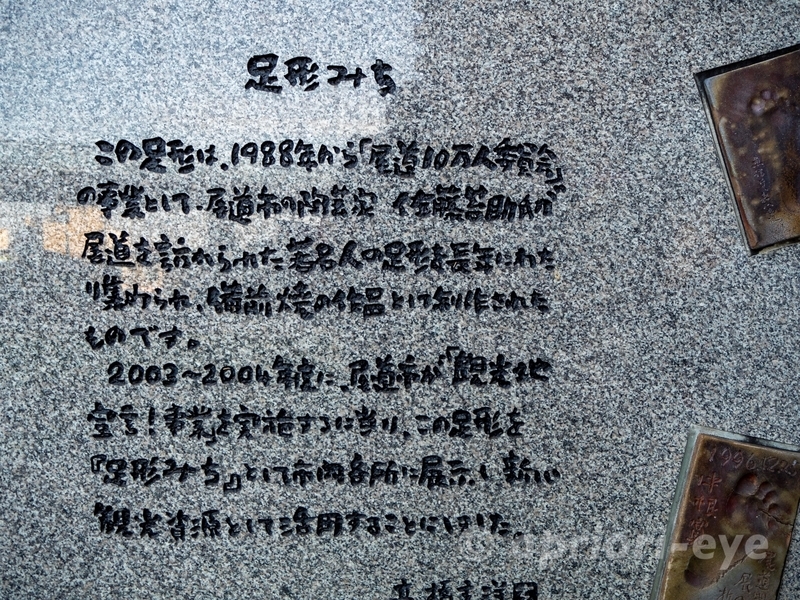 足形みち
この足形は、1988年から「尾道10万人委員会」
の事業として、尾道市の陶芸家 佐藤苔助氏が
尾道を訪れられた著名人の足形を長年にわた
り集められ、備前焼の作品として制作された
ものです。
2003~2004年度に、尾道市が「観光地
宣言!事業」を実施するに当り、この足形を
『足形みち』として市内各所に展示し新しい
観光資源として活用することにしました。
© apriori-eye